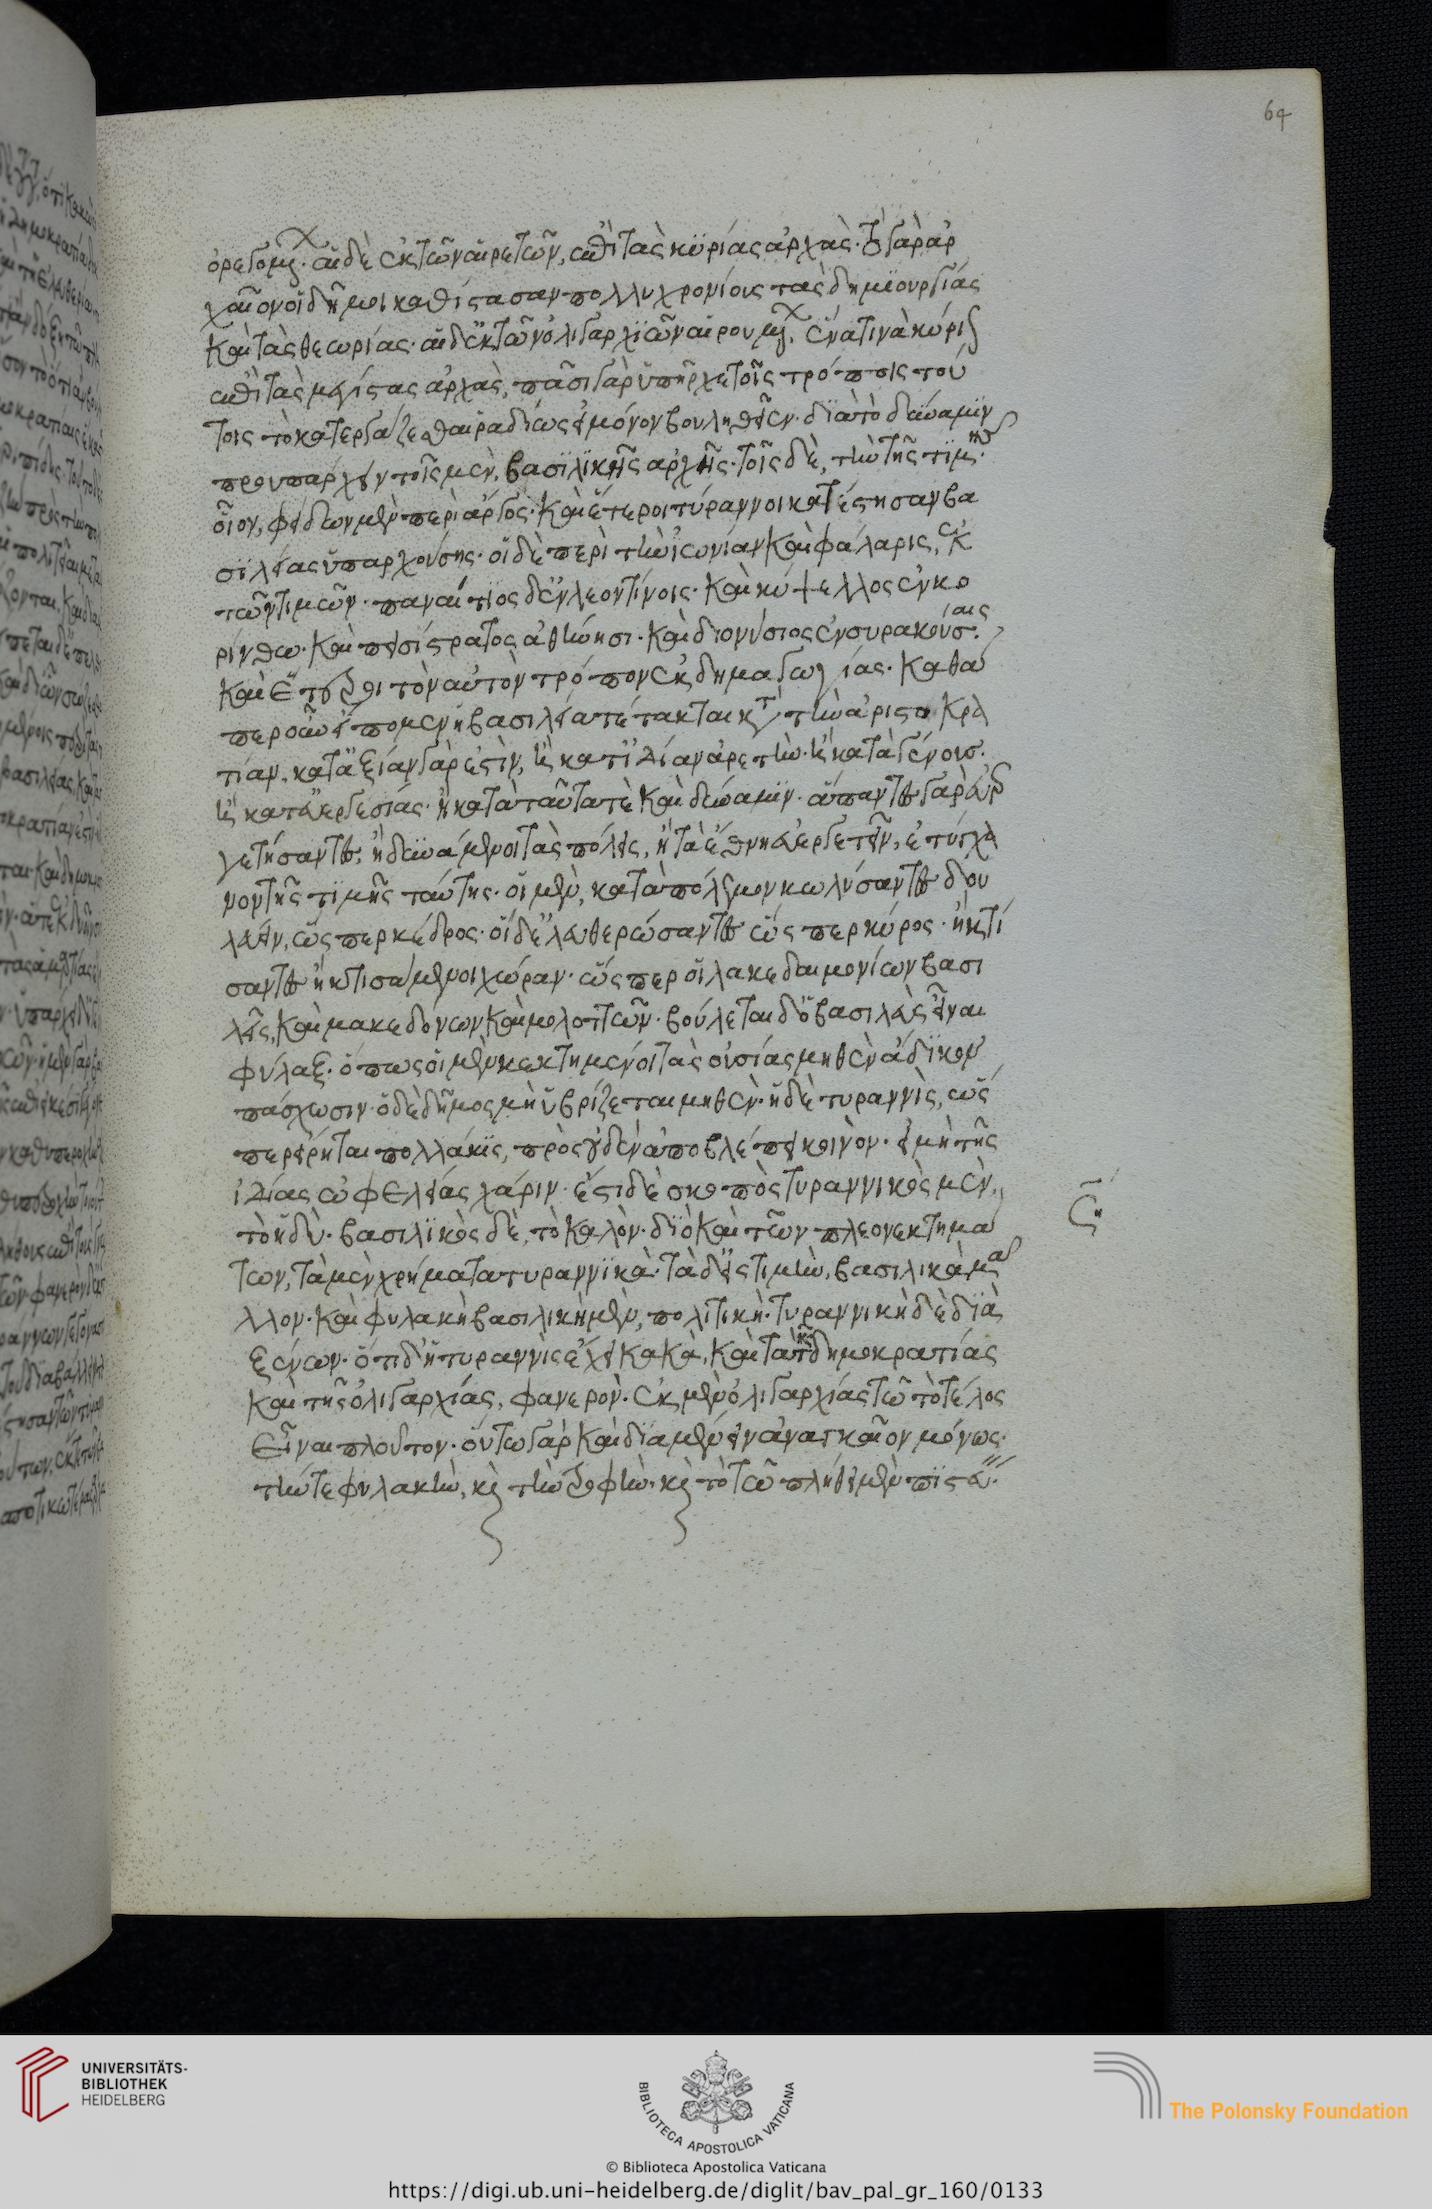 ὀρεγομένων. αἱ δὲ ἐκ τῶν αἱρετῶν, ἐπὶ τὰς κυρίας ἀρχὰς. τὸ γὰρ ἀρ
χαῖον οἱ δῆμοι καθίστασαν πολλυχρονίους τὰς δημιουργίας
καὶ τὰς θεωρίας. αἱ δ' ἐκ τῶν ὀλιγαρχιῶν αἱρουμένων, ἕνα τινὰ κύριον
ἐπὶ τὰς μεγίστας ἀρχὰς, πᾶσι γὰρ ὑπῆρχε τοῖς τρόποις τού
τοις τὸ κατεργάζεσθαι ῥαδίως εἰ μόνον βουληθεῖεν. διὰ τὸ δύναμιν
προυπάρχειν τοῖς μὲν, βασιλικῆς ἀρχῆς. τοῖς δὲ, τὴν τῆς τιμῆς.
οἷον, φείδων μὲν περὶ ἄργος. καὶ ἕτεροι τύραννοι κατέστησαν βα
σιλείας ὑπαρχούσης. οἱ δὲ περὶ τὴν ἰωνίαν καὶ φάλαρις, ἐκ
τῶν τιμῶν. παναίτιος δ' ἐν λεοντίνοις. καὶ κύψελλος ἐν κο
ρίνθω. καὶ πεισίστρατος ἀθήνησι. καὶ διονύσιος ἐν συρακούσαις.
καὶ ἕτεροι τὸν αὐτὸν τρόπον ἐκ δημαγωγίας. καθά
περ οὖν εἴπομεν ἡ βασιλεία τέτακται κατὰ τὴν ἀριστοκρα
τίαν. κατ' ἀξίαν γάρ ἐστιν, ἢ κατ' ἰδίαν ἀρετὴν. ἢ κατὰ γένους.
ἢ κατ' εὐεργεσίας. ἢ κατὰ ταῦτά τε καὶ δύναμιν. ἅπαντες γὰρ εὐερ
γετήσαντες, ἢ δυνάμενοι τὰς πόλεις, ἢ τὰ ἔθνη εὐεργετεῖν, ἐτύγχα
νον τῆς τιμῆς ταύτης. οἱ μὲν, κατὰ πόλεμον κωλύσαντες δου
λεύειν, ὥσπερ κέδρος. οἱ δ' ἐλευθερώσαντες ὥσπερ κύρος. ἢ κτί
σαντες ἢ κτισάμενοι χώραν. ὥσπερ οἱ λακεδαιμονίων βασι
λεῖς, καὶ μακεδόνων καὶ μολοττῶν. βούλεται δ' ὁ βασιλεὺς εἶναι
φύλαξ. ὅπως οἱ μὲν κεκτημένοι τὰς οὐσίας μηθὲν ἄδικον
πάσχωσιν. ὁ δὲ δῆμος μὴ ὑβρίζεται μηθέν. ἡ δὲ τυραννὶς, ὥς
περ εἴρηται πολλάκις, πρὸς οὐδὲν ἀποβλέπει κοινὸν. εἰ μὴ τῆς
ἰδίας ὠφελείας χάριν. ἔστι δὲ σκοπὸς τυραννικὸς μὲν,
τὸ ἡδὺ. βασιλικὸς δὲ, τὸ καλὸν. διὸ καὶ τῶν πλεονεκτημά
των, τὰ μὲν χρήματα τυραννικὰ. τὰ δ' εἰς τιμὴν, βασιλικὰ μᾶ
λλον. καὶ φυλακὴ βασιλικὴ μὲν, πολιτικὴ. τυραννικὴ δὲ διὰ
ξένων. ὅτι δ' ἡ τυραννὶς ἔχει κακὰ, καὶ τὰ τῆς δημοκρατίας
καὶ τῆς ὀλιγαρχίας, φανερὸν. ἐκ μὲν ὀλιγαρχίας τῶ τὸ τέλος
εἶναι πλοῦτον. οὕτω γὰρ καὶ διαμένειν ἀναγκαῖον μόνως.
τήν τε φυλακὴν, καὶ τὴν τροφὴν. καὶ τὸ τῶ πλήθει μὲν πιστεύ
64
© Biblioteca Apostolica Vaticana
UNIVERSITÄTS-
BIBLIOTHEK
HEIDELBERG
BIBLIOTECA APOSTOLICA VATICANA
The Polonsky Foundation
https://digi.ub.uni-heidelberg.de/diglit/bav_pal_gr_160/0133